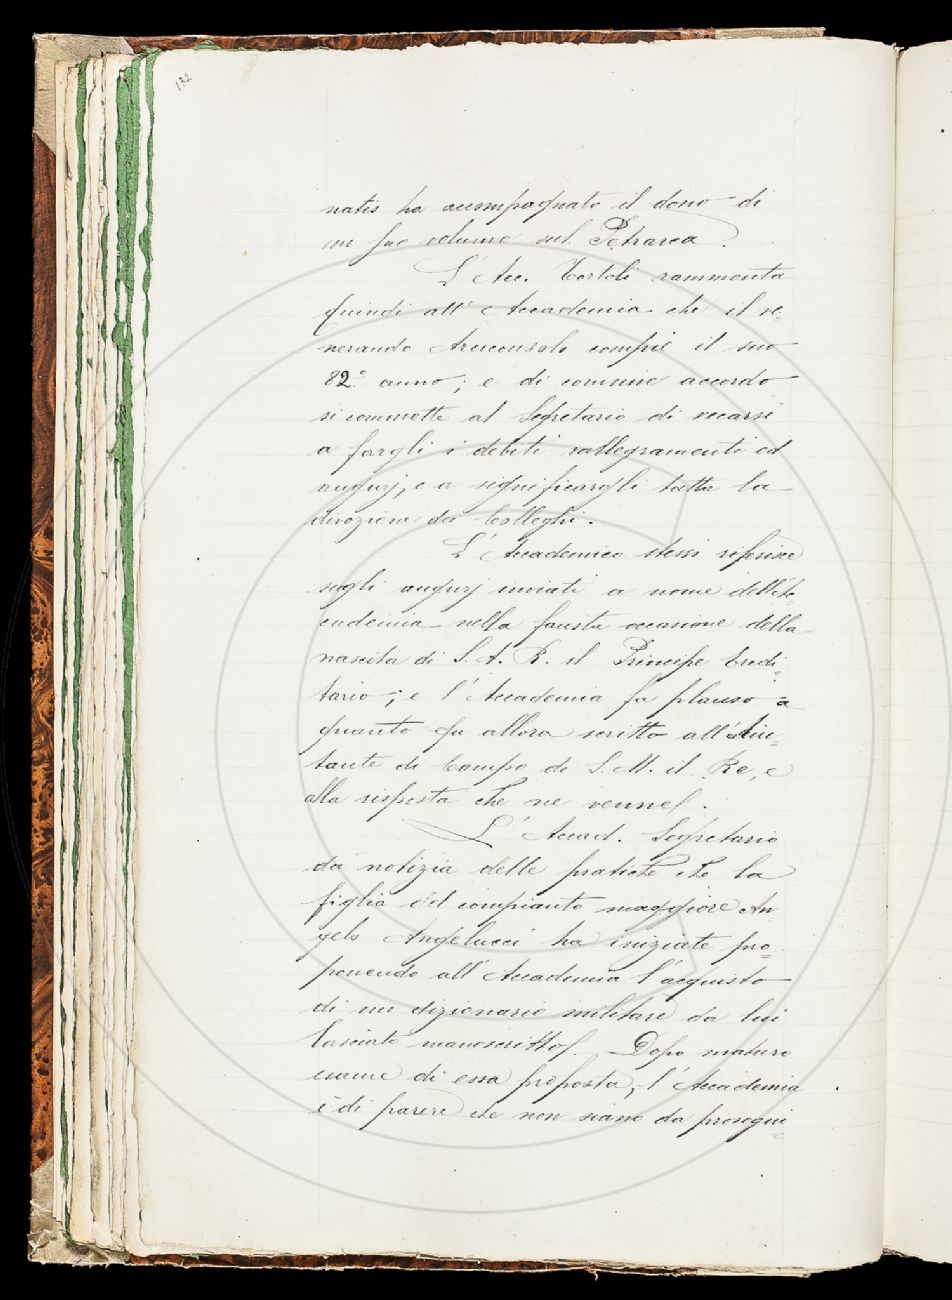 132
natis ha accompagnato il dono di
un suo volume sul Petrarca.
L'Acc. Tortoli rammenta
quindi all'Accademia che il ve=
nerando Arciconsolo compiè il suo
82.° anno; e di comune accordo
si commette al Segretario di recarsi
a fargli i debiti rallegramenti ed
augurj, e a significargli tutta la
divozione dei Colleghi.
L'Accademico stesso riferisce
sugli augurj inviati a nome dell'Ac=
cademia nella fausta occasione della
nascita di S. A. R. il Principe Eredi=
tario; e l'Accademia fa plauso a
quanto fu allora scritto all'Aiu=
tante di Campo di S. M. il Re, e
alla risposta che ne venne.
L'Accad. Segretario
dà notizia delle pratiche che la
figlia del compianto maggiore An=
gelo Angelucci ha iniziate pro=
ponendo all'Accademia l'acquisto
di un dizionario militare da lui
lasciato manoscritto. Dopo maturo
esame di essa proposta, l'Accademia
è di parere che non siano da prosegui=